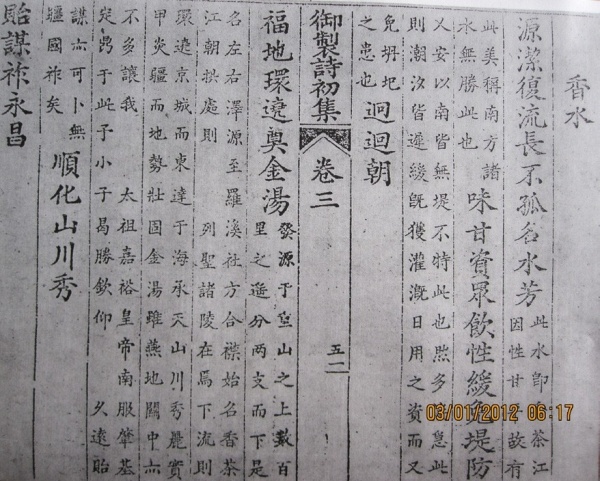 香水
源潔復流長不孤名水芳
此水即香茶江
因性甘故有
此美稱南方諸
水無勝此也
味甘資眾飲性緩免堤防
乂安以南皆無堤不特此也然多急此
則潮汐皆遲緩旣獲灌漑日用之資而又
免坍圮
之患也
迥迴朝
御製詩初集 卷三 五一
福地環遶奠金湯
發源于壹山之上數百
里之遥分两支而下是
名左右澤源至羅溪社方合襟始名香茶
江朝拱處則 列聖諸陵在焉下流則
環遶京城而東達于海承天山川秀麗實
甲炎疆而地勢壯固金湯雖燕地關中亦
不多讓我 太祖嘉裕皇帝南服肇基
定鼎于此予小子曷勝欽仰 久遠貽
謀亦可卜無
疆國祚矣
順化山川秀
貽謀祚永昌
03/01/2012 06:17